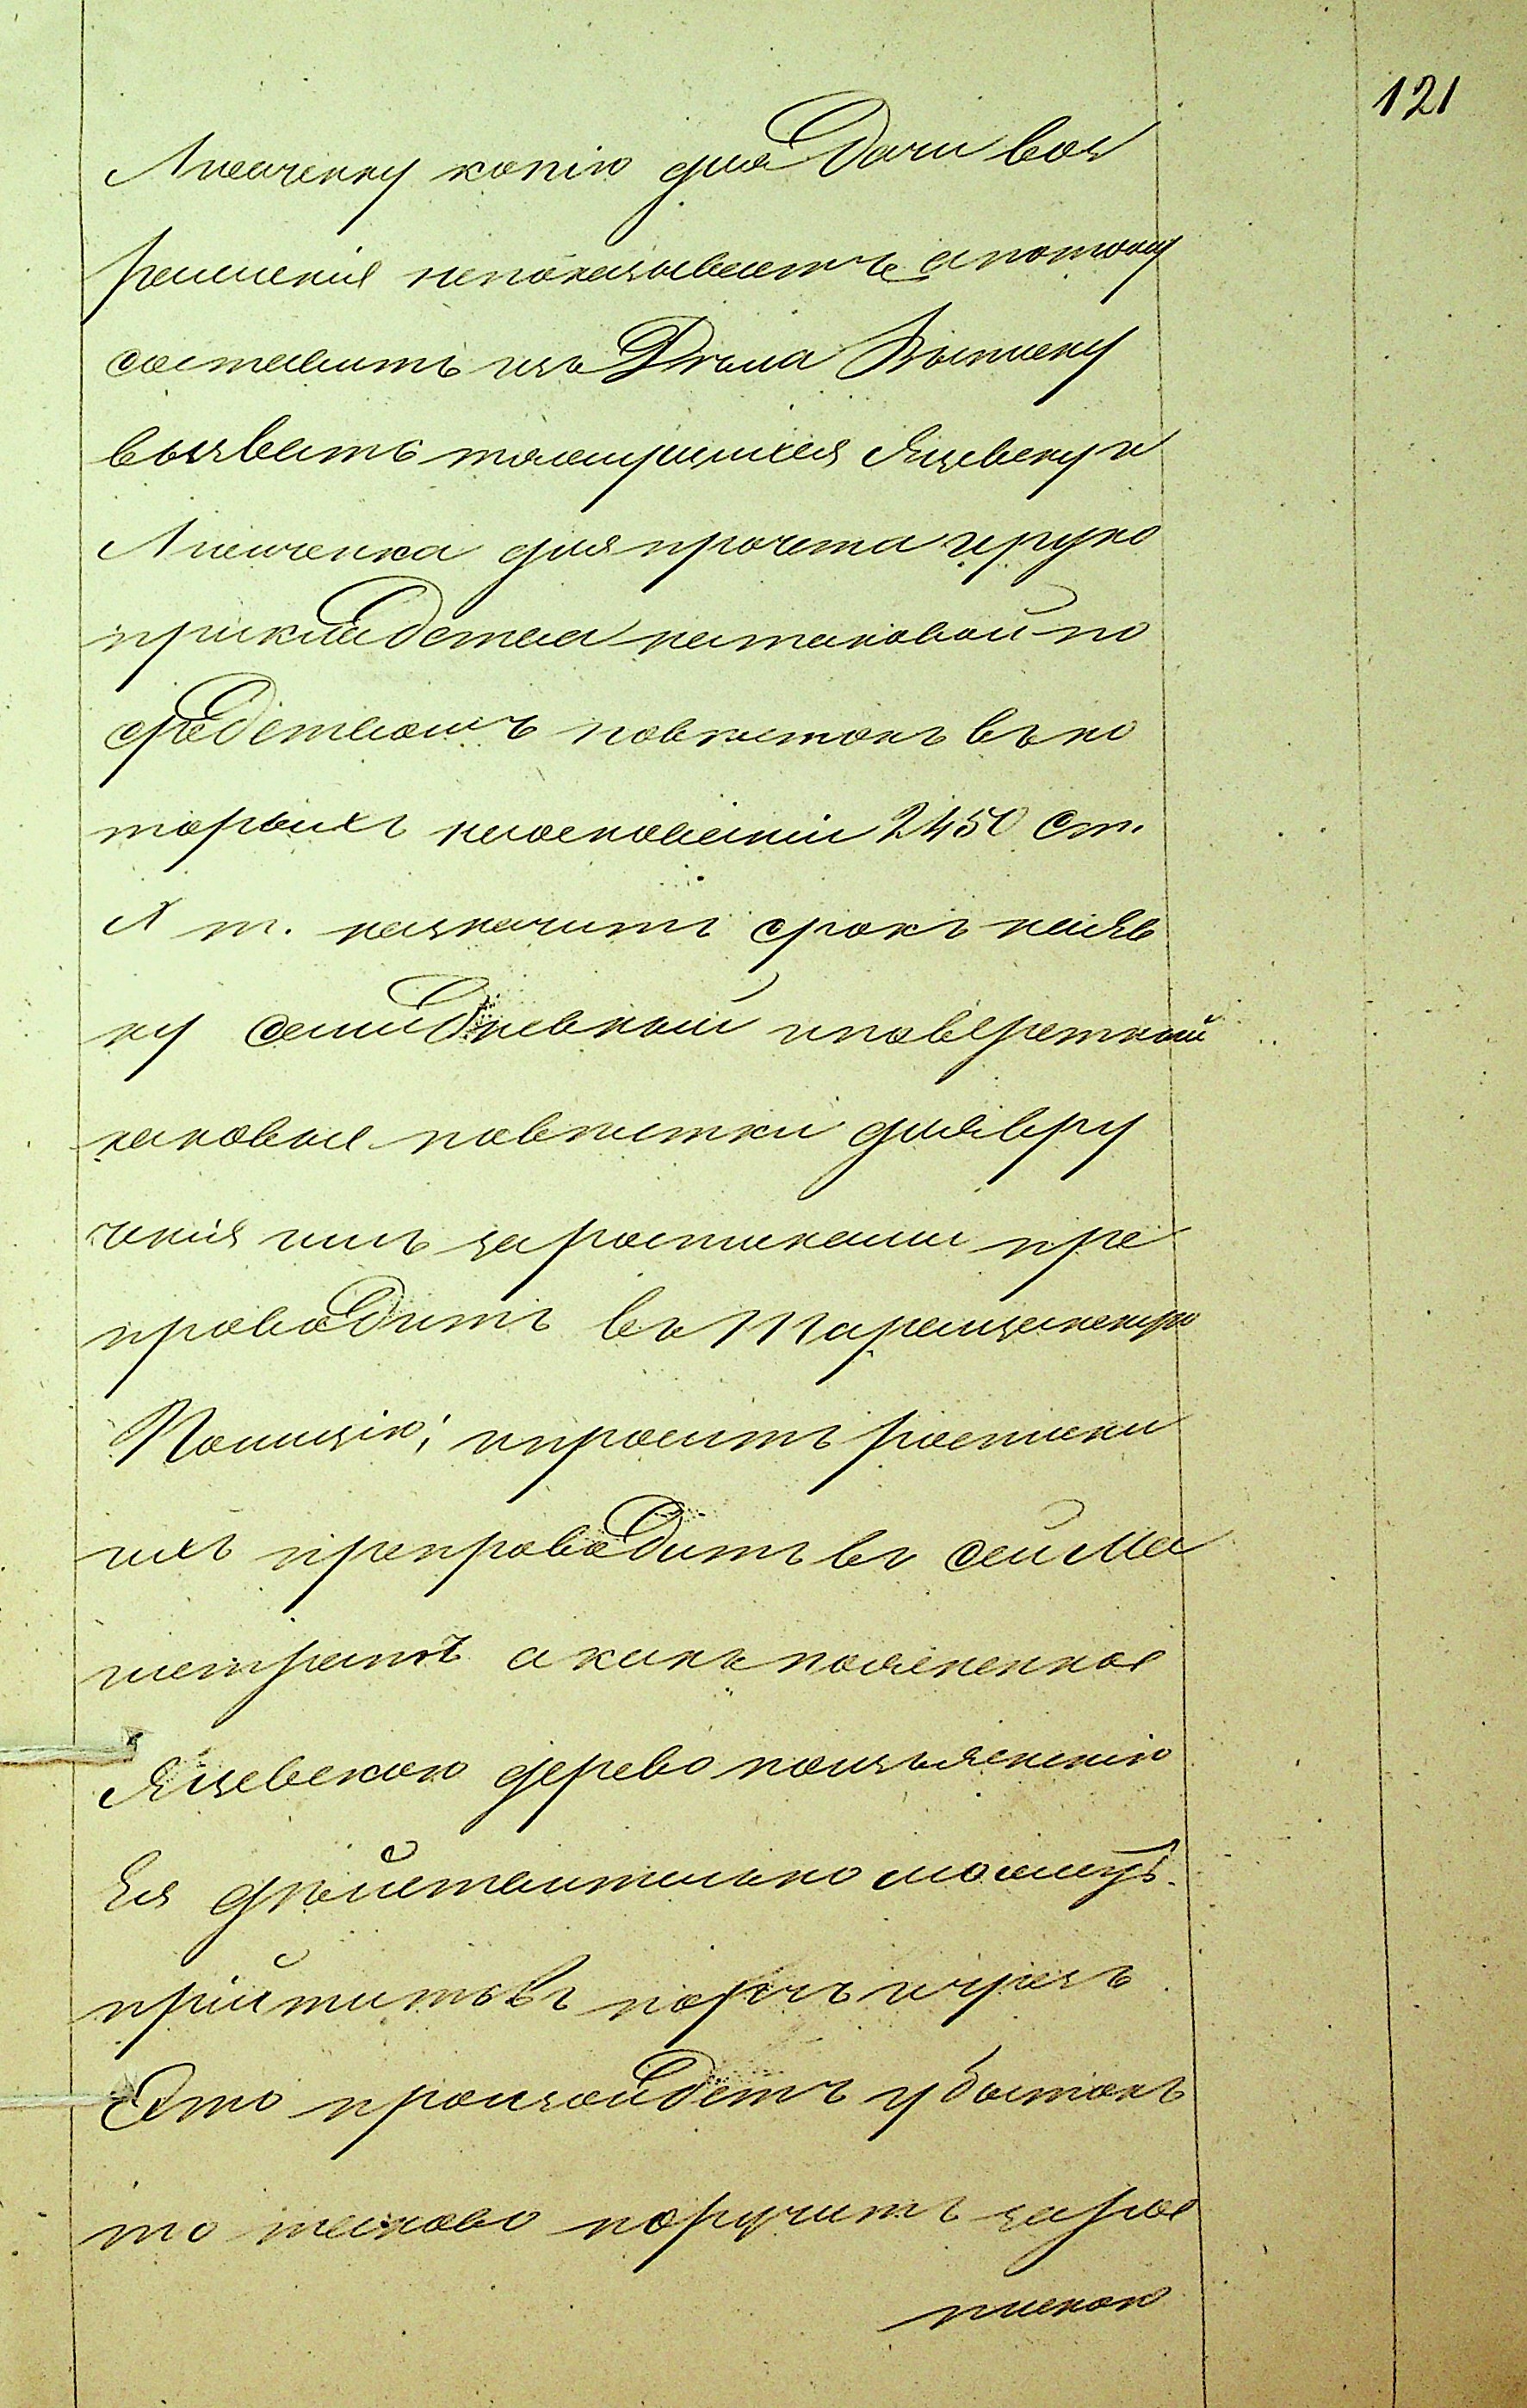 121
Лисиченку копію для дачи воз
решенія непоказываетъ а потому
составить изъ Дѣла Выписку
вызвать тяжущихся Яцевску и
Лисиченка для прочета и руко
прикладства на таковой по
средствомъ повѣстокъ въ ко
торыхъ на основаніи 2450 ст.
X т. назначить срокъ на яв
ку семидневный и поверстный
каковые повѣстки для вру
ченія имъ за росписками пре
проводить въ Таращанскую
Полицію, и просить росписки
ихъ препроводить въ сей Ма
гистратъ а какъ поясненное
Яцевскою дерево по изъясненію
Ея дѣйствительно можетъ
прійтить въ порчъ и чрезъ
Это произойдетъ убытокъ
то таково поручить за рос
пискою